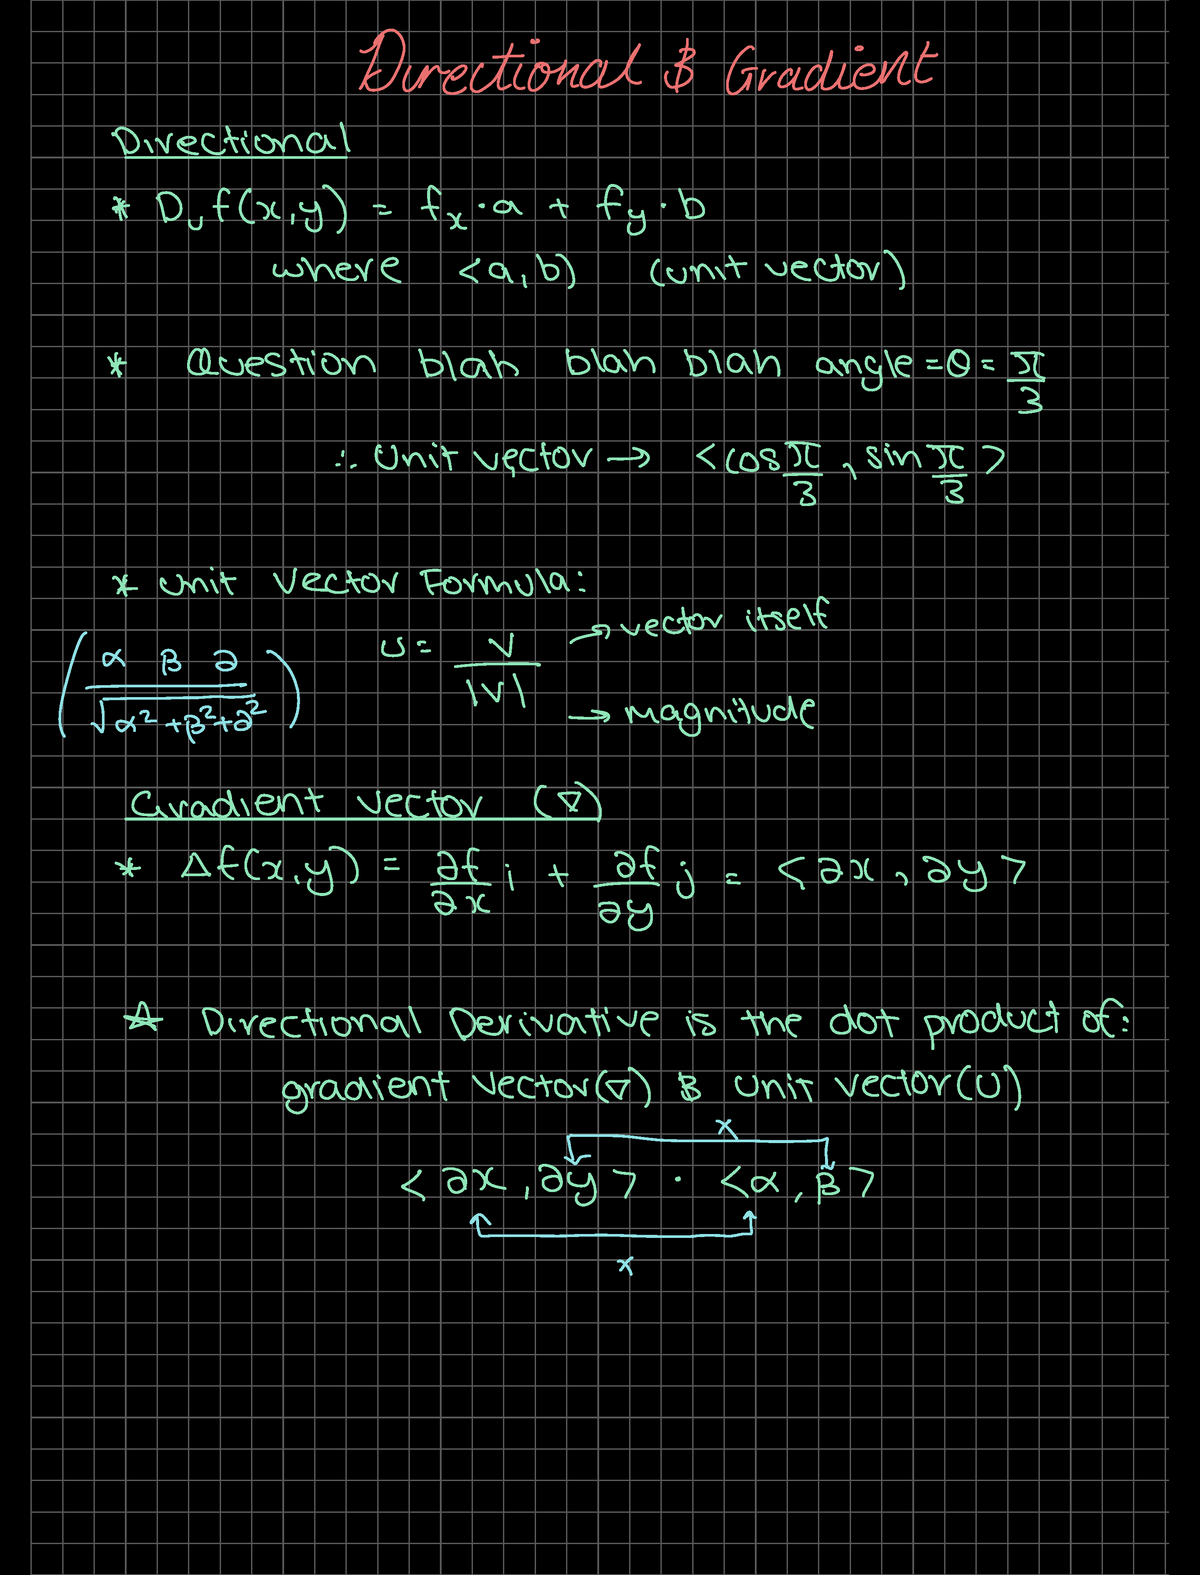 Directional & Gradient
Directional
* Duf(x,y) = fx·a + fy·b
where <a,b) (unit vector)
* Question blah blah blah angle = θ = π/3
∴ Unit vector → <cos π/3, sin π/3>
* Unit Vector Formula:
u = v/|v| → vector itself
→ magnitude
(α β ∂ / √α²+β²+∂²)
Gradient vector (∇)
* Δf(x,y) = ∂f/∂x i + ∂f/∂y j = <∂x, ∂y>
☆ Directional Derivative is the dot product of:
gradient vector(∇) & Unit vector(U)
x
<∂x, ∂y> · <α, β>
x